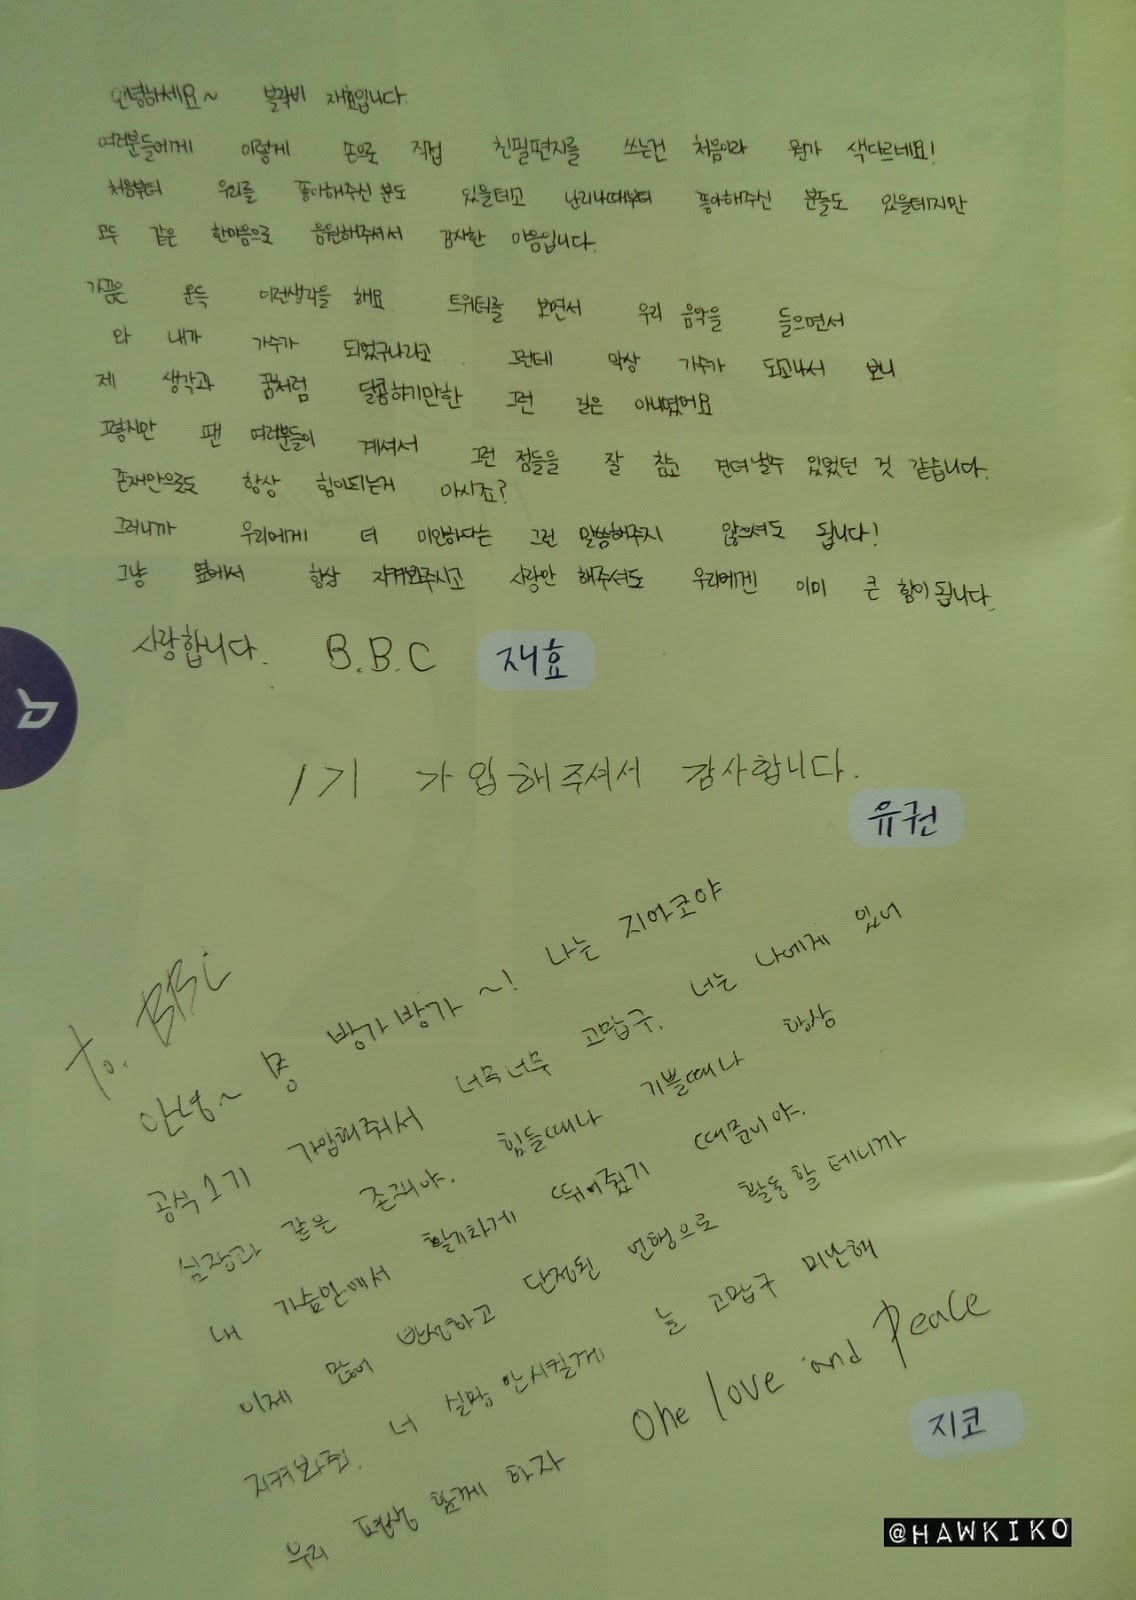 안녕하세요~ 블락비 재효입니다.
여러분들에게 이렇게 손으로 직접 친필편지를 쓰는건 처음이라 뭔가 색다르네요!
처음부터 우리를 좋아해주신 분도 있을테고 난리나때부터 좋아해주신 분들도 있을테지만
모두 같은 한마음으로 응원해주셔서 감사한 마음입니다.
가끔은 문득 이런생각을 해요 트위터를 보면서 우리 음악을 들으면서
와 내가 가수가 되었구나라고 그런데 막상 가수가 되고나서 보니
제 생각과 꿈처럼 달콤하기만한 그런 길은 아니였어요
그렇지만 팬 여러분들이 계셔서 그런 점들을 잘 참고 견뎌낼수 있었던 것 같습니다.
존재만으로도 항상 힘이되는거 아시죠?
그러니까 우리에게 더 미안하다는 그런 말씀해주지 않으셔도 됩니다!
그냥 옆에서 항상 지켜봐주시고 사랑만 해주셔도 우리에겐 이미 큰 힘이됩니다.
사랑합니다. B.B.C 재효
1기 가입해주셔서 감사합니다.
유권
to. BBC
안녕~ 방가방가~! 나는 지아코야
공식1기 가입해줘서 너무너무 고맙구. 너는 나에게 있어
심장과 같은 존재야. 힘들때나 기쁠때나 항상
내 가슴안에서 활기차게 뛰어줬기 때문이야.
이제 많이 반성하고 단정된 언행으로 활동할테니까
지켜봐줘. 너 실망안시킬게 늘 고맙구 미안해
우리 평생 함께 하자 One love and Peace
지코
@HAWKIKO